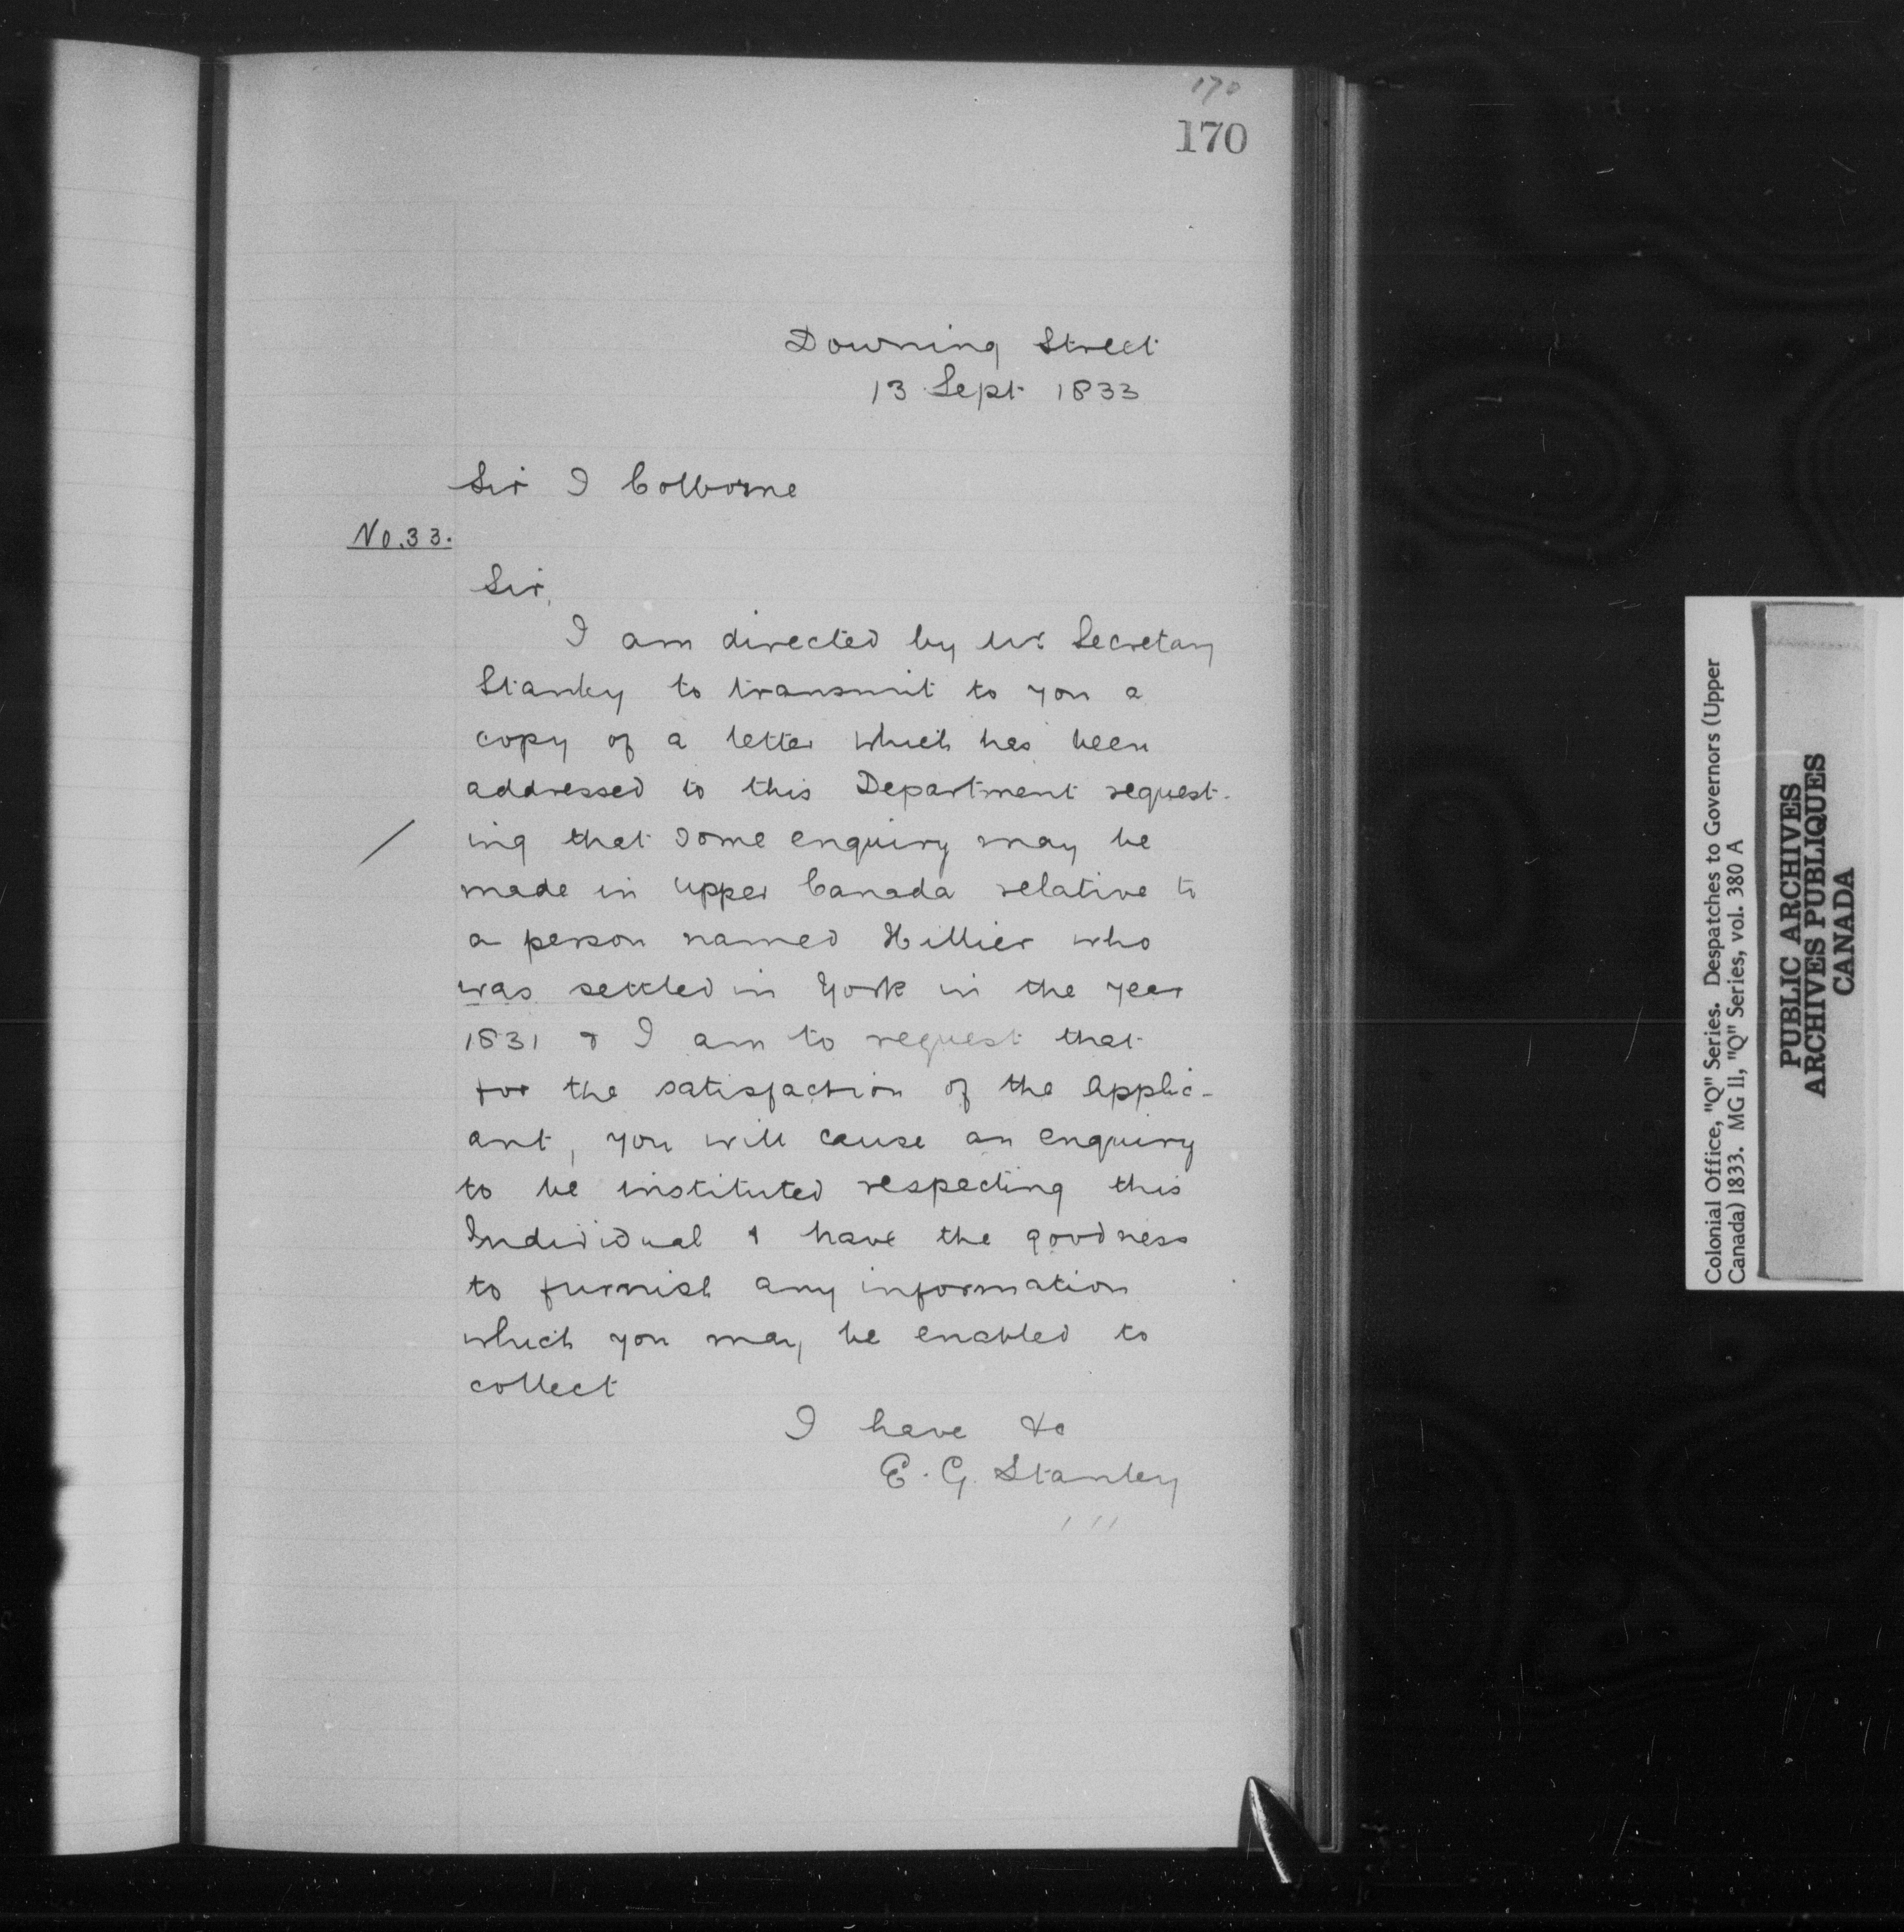 170
170
Downing Street
13 Sept 1833
Sir J Colborne
No. 33.
Sir,
I am directed by Mr. Secretary
Stanley to transmit to you a
copy of a letter which has been
addressed to this Department request-
ing that some enquiry may be
made in Upper Canada relative to
a person named Hillier who
was settled in York in the year
1831 & I am to request that
for the satisfaction of the applic-
ant, you will cause an enquiry
to be instituted respecting this
Individual & have the goodness
to furnish any information
which you may be enabled to
collect
I have &c
E. G. Stanley
Colonial Office, "Q" Series. Despatches to Governors (Upper
Canada) 1833. MG 11, "Q" Series, vol. 380 A
PUBLIC ARCHIVES
ARCHIVES PUBLIQUES
CANADA